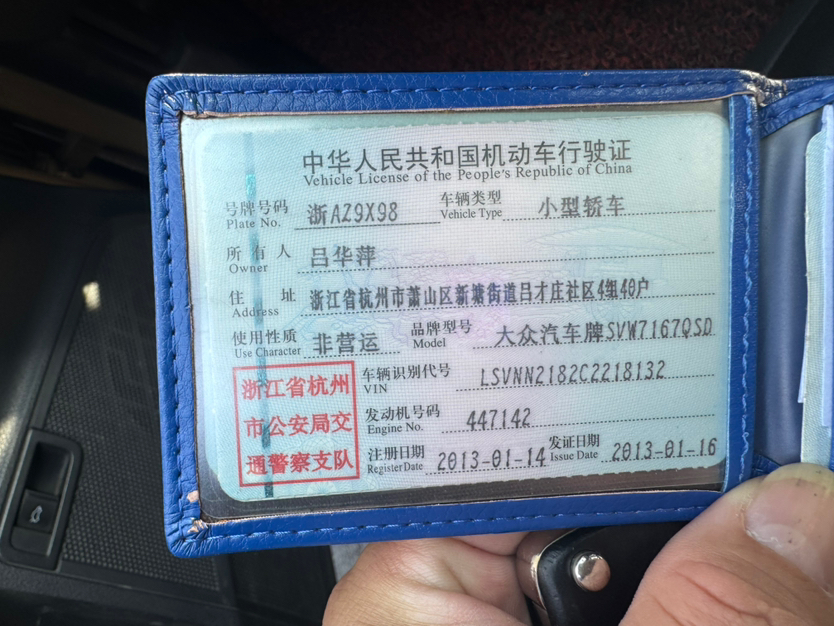 中华人民共和国机动车行驶证
Vehicle License of the People's Republic of China
号牌号码 浙AZ9X98 车辆类型 小型轿车
Plate No. Vehicle Type
所有人 吕华萍
Owner
住址 浙江省杭州市萧山区新塘街道吕才庄社区4组40户
Address
使用性质 非营运 品牌型号 大众汽车牌SVW7167QSD
Use Character Model
浙江省杭州
市公安局交
通警察支队
车辆识别代号 LSVNN2182C2218132
VIN
发动机号码 447142
Engine No.
注册日期 2013-01-14 发证日期 2013-01-16
Register Date Issue Date